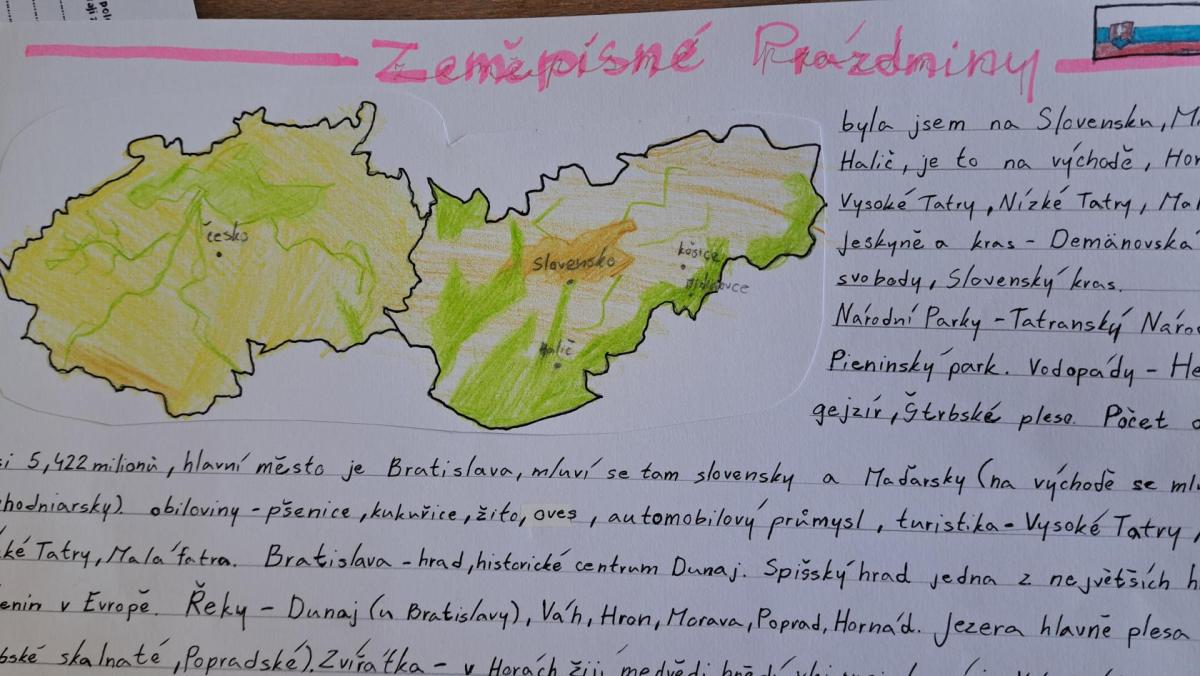 Zeměpisné Prázdniny
Česko
Slovensko
Košice
Halič
byla jsem na Slovensku,
Halič, je to na východě,
Vysoké Tatry, Nízké Tatry,
Jeskyně a kras - Demänovská
svobody, Slovenský kras.
Národní Parky - Tatranský
Pieninský park. Vodopády -
gejzír, Štrbské pleso. Počet
5,422 milionů, hlavní město je Bratislava, mluví se tam slovensky a Maďarsky (na východě se
obiloviny - pšenice, kukuřice, žito, oves, automobilový průmysl, turistika - Vysoké Tatry,
Tatry, Malá fatra. Bratislava - hrad, historické centrum Dunaj. Spišský hrad jedna z největších
v Evropě. Řeky - Dunaj (u Bratislavy), Váh, Hron, Morava, Poprad, Hornád. Jezera hlavně plesa
skalnaté, Popradské). Zvířátka - v Horách žijí medvědi